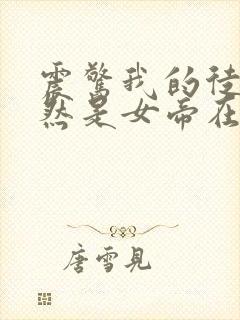 震驚我的徒
然是女帝在
唐雪見